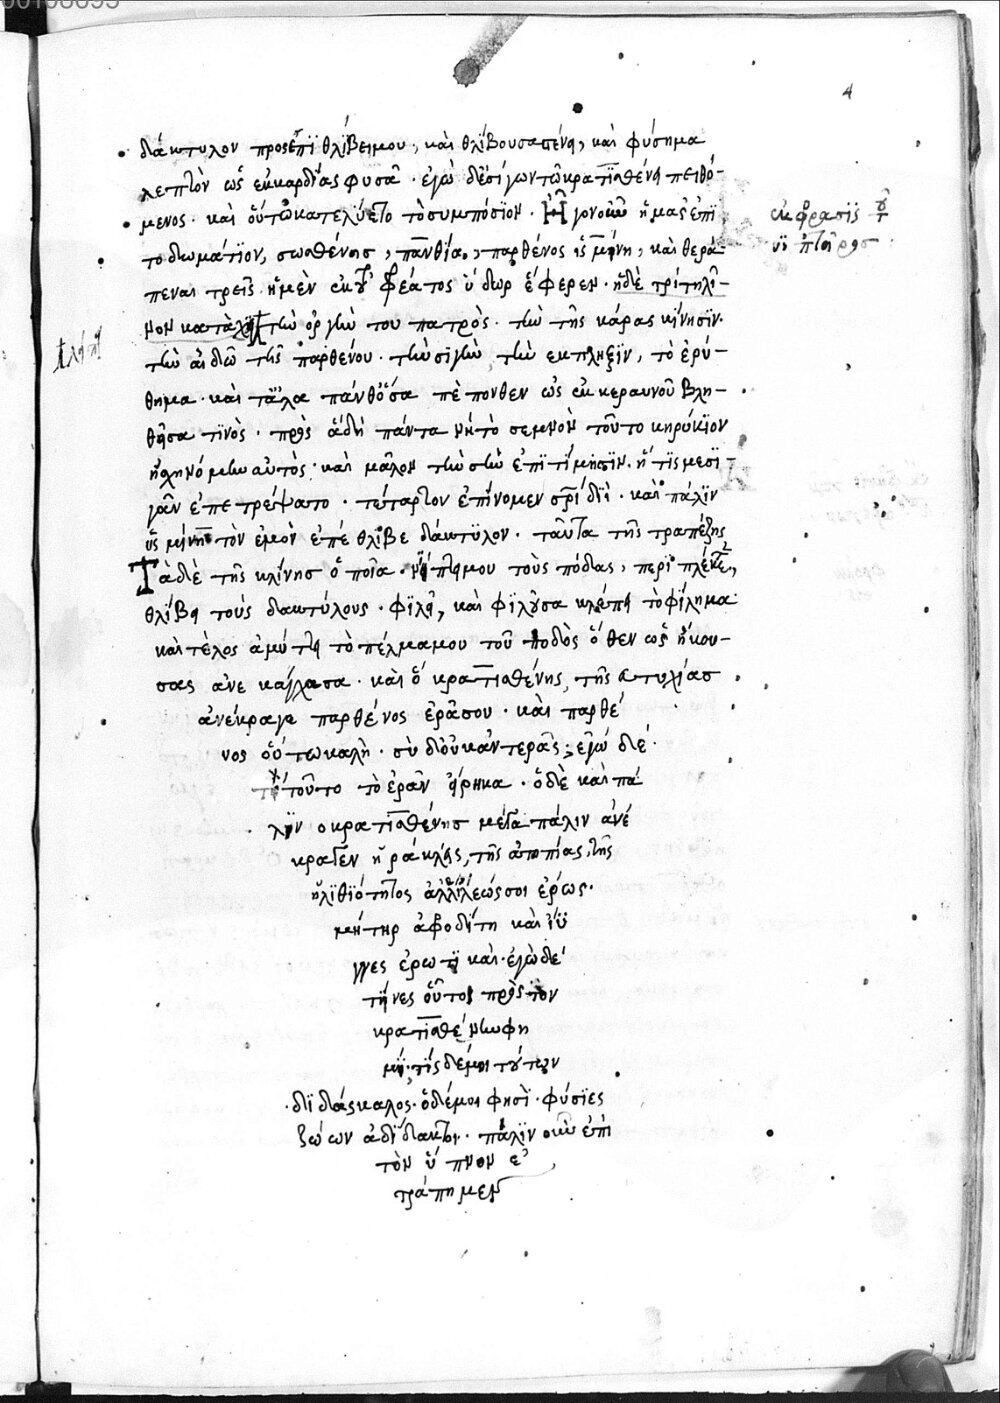 4
δάκτυλον προσεπιθλίβει μου, καὶ θλίβουσα στένει, καὶ φύσημα
λεπτὸν ὡς ἐκ καρδίας φυσᾶ· ἐγὼ δὲ σιγῶν τῶ κρατισθένη πειθό-
μενος· καὶ οὕτω κατελύετο τὸ συμπόσιον· Ἡ γοῦν ἡμᾶς ἐπὶ
τὸ δωμάτιον, σωσθένης, πανθία, παρθένος ἰσμήνη, καὶ θερά-
παιναι τρεῖς ἡ μὲν ἐκ φρέατος ὕδωρ ἔφερεν· ἡ δὲ
τὴν ὀργὴν τοῦ πατρὸς· τὴν τῆς κάρας κίνησιν·
τὴν αἰδῶ τῆς παρθένου· τὴν σιγὴν τὴν ἔκπληξιν, τὸ ἐρύ-
θημα· καὶ τἄλλα πάνθ' ὅσα πέπονθεν ὡς ἐκ κεραυνοῦ βλη-
θεῖσα τινὸς· πρὸς ἃ δὴ πάντα μὴ τὸ σεμνὸν τοῦτο κηρύκιον
ᾐσχυνόμην αὐτὸς· καὶ μᾶλλον τὴν σὴν ἐπιτίμησιν· ἥτις με σι-
γᾶν ἐπετρέψατο· τέταρτον ἐπίνομεν· καὶ πάλιν
ἰσμήνη τὸν ἐμὸν ἐπέθλιβε δάκτυλον· ταῦτα τῆς τραπέζης
Τὰ δὲ τῆς κλίνης ὁποῖα· νίπτει μου τοὺς πόδας, περιπλέκεται,
θλίβει τοὺς δακτύλους· φιλεῖ, καὶ φιλοῦσα κλέπτει τὸ φίλημα·
καὶ τέλος ἀμύττει τὸ πέλμα μου τοῦ ποδὸς ὅθεν ὡς ἤκου-
σας ἀνεκάγχασα· καὶ ὁ κρατισθένης, τῆς εὐτυχίας
ἀνέκραγε παρθένος ἐρᾶ σου· καὶ παρθέ
νος οὕτω καλὴ· σὺ δ' οὐκ ἀντερᾶς; ἐγὼ δὲ·
τί τοῦτο τὸ ἐρᾶν εἴρηκα· ὁ δὲ καὶ πά
λιν ὁ κρατισθένης μέγα πάλιν ἀνέ
κραγεν ἡράκλεις, τῆς ἀτοπίας, τῆς
ἠλιθιότητος ἀλλ' ἵλεώς σοι ἔρως·
μήτηρ ἀφροδίτη καὶ ἴϋ
γγες ἐρωτι καὶ· ἐγὼ δὲ
τίνες οὗτοι πρὸς τὸν
κρατισθένην ἔφη
μι· τίς δέ μοι τούτων
διδάσκαλος· ὁ δέ μοι φησὶ· φύσιες
ζώων ἀδίδακτοι· πάλιν οὖν ἐπὶ
τὸν ὕπνον ἐ
τράπημεν